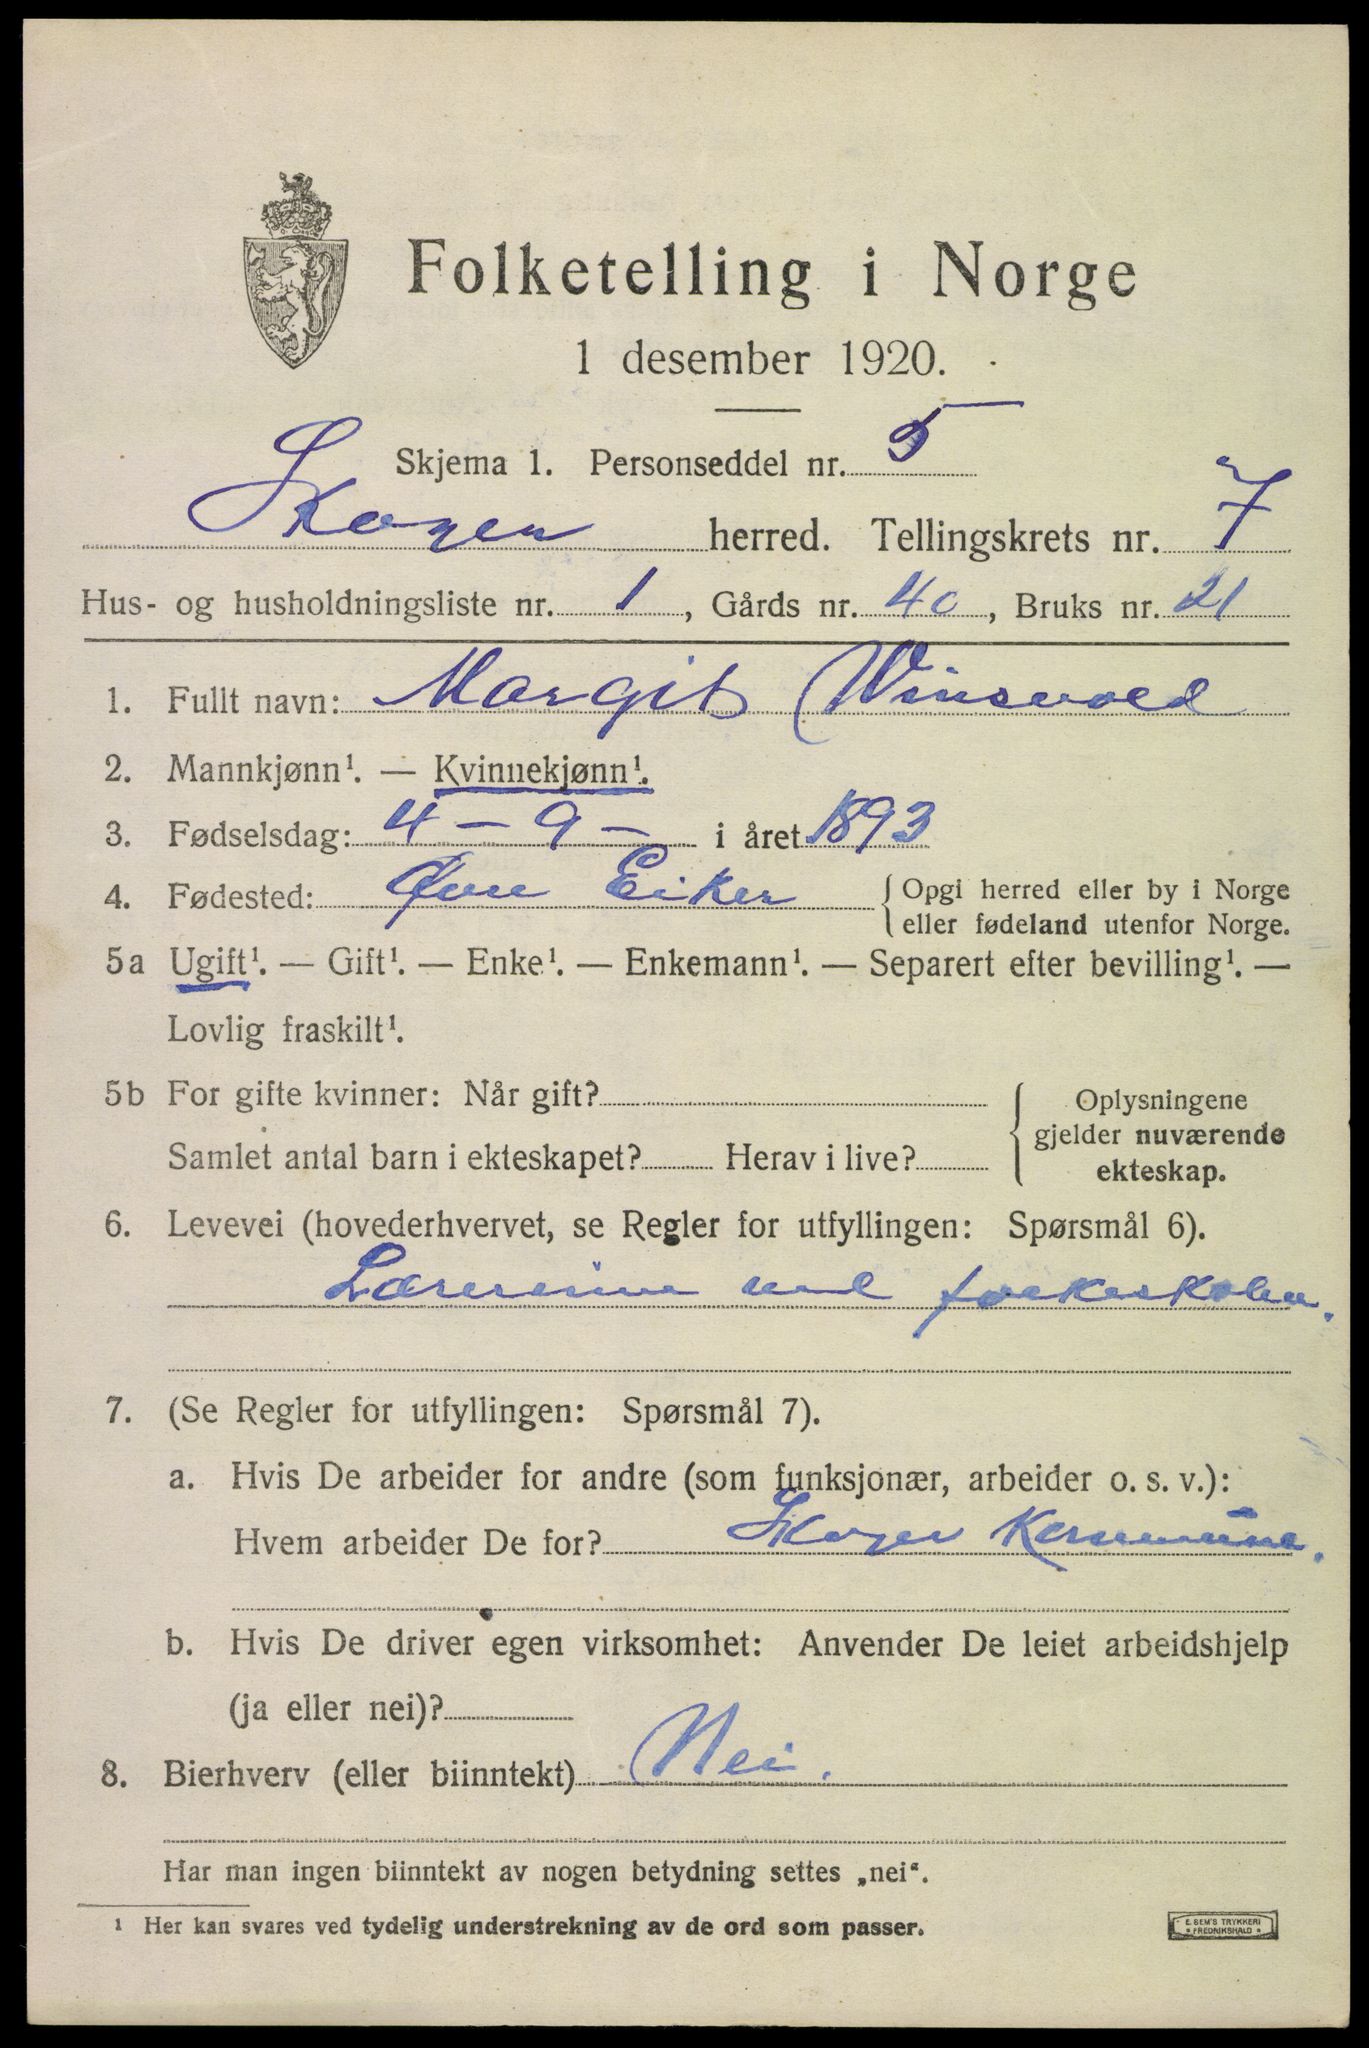 Folketelling i Norge
1 desember 1920.
Skjema 1. Personseddel nr. 5
Skoger herred. Tellingskrets nr. 7
Hus- og husholdningsliste nr. 1, Gårds nr. 40, Bruks nr. 21
1. Fullt navn: Margit Winsvold
2. Mannkjønn¹. — Kvinnekjønn¹.
3. Fødselsdag: 4 – 9 – i året 1893
4. Fødested: Øvre Eiker { Opgi herred eller by i Norge
eller fødeland utenfor Norge.
5a Ugift¹. — Gift¹. — Enke¹. — Enkemann¹. — Separert efter bevilling¹. —
Lovlig fraskilt¹.
5b For gifte kvinner: Når gift? { Oplysningene
gjelder nuværende
Samlet antal barn i ekteskapet? Herav i live?
ekteskap.
6. Levevei (hovederhvervet, se Regler for utfyllingen: Spørsmål 6).
Lærerinne ved folkeskolen.
7. (Se Regler for utfyllingen: Spørsmål 7).
a. Hvis De arbeider for andre (som funksjonær, arbeider o. s. v.):
Hvem arbeider De for? Skoger Kommune.
b. Hvis De driver egen virksomhet: Anvender De leiet arbeidshjelp
(ja eller nei)?
8. Bierhverv (eller biinntekt) Nei.
Har man ingen biinntekt av nogen betydning settes „nei".
¹ Her kan svares ved tydelig understrekning av de ord som passer.
E. SEM'S TRYKKERI
FREDRIKSHALD